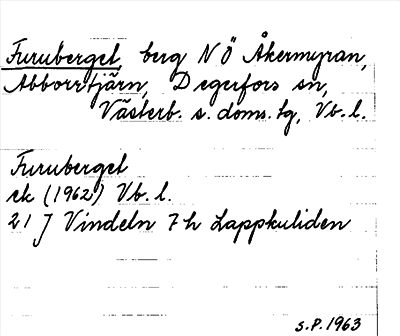 Furuberget, berg NÖ Åkermyran,
Abborrtjärn, Degerfors sn,
Västerb. s. doms. tg, Vb. l.
Furuberget
ek (1962) Vb. l.
21 J Vindeln 7 h Lappkuliden
S.P. 1963